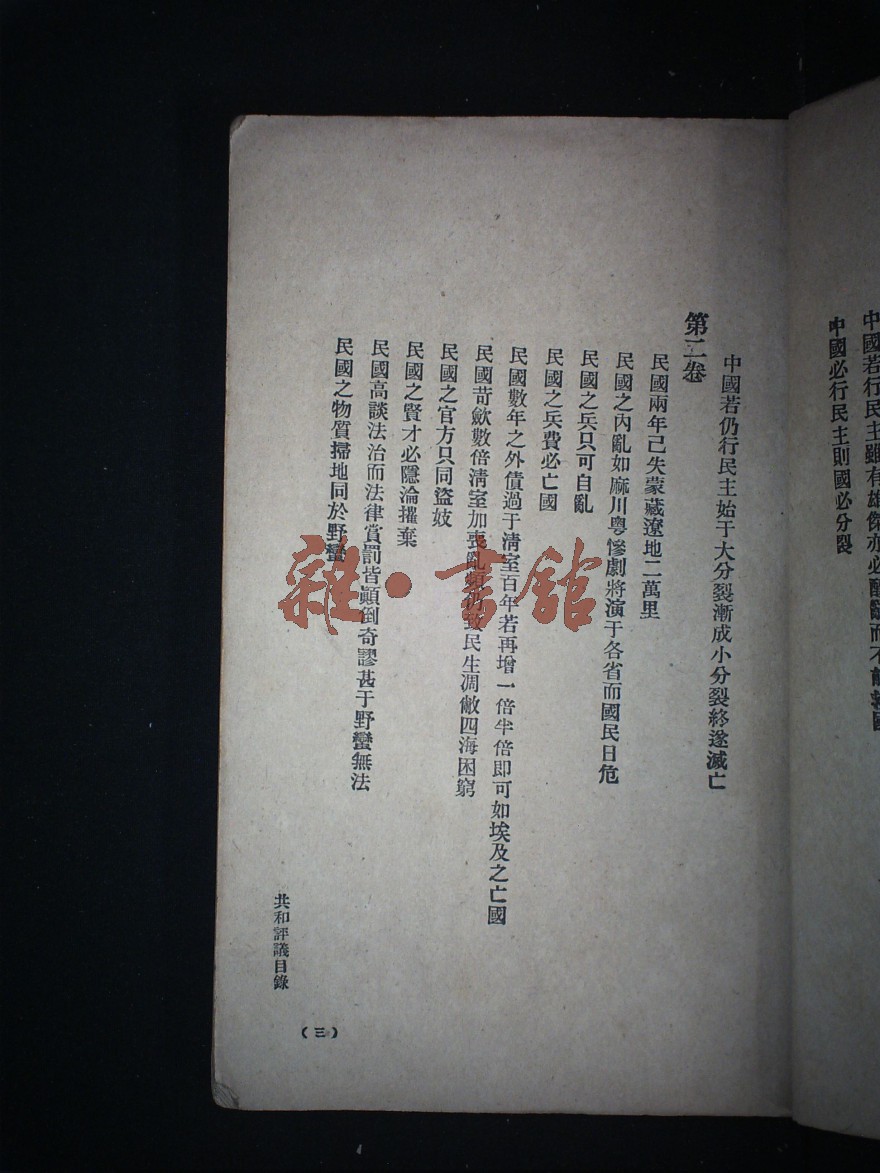 中國若行民主雖有雄傑亦必酣鬬而不能救國
中國必行民主則國必分裂
中國若仍行民主始于大分裂漸成小分裂終遂滅亡
第二卷
民國兩年已失蒙藏遼地二萬里
民國之內亂如麻川粵慘劇將演于各省而國民日危
民國之兵只可自亂
民國之兵費必亡國
民國數年之外債過于清室百年若再增一倍半倍即可如埃及之亡國
民國苛歛數倍清室加喪亂頻仍致民生凋敝四海困窮
民國之官方只同盜妓
民國之賢才必隱淪摧棄
民國高談法治而法律賞罰皆顚倒奇謬甚于野蠻無法
民國之物質掃地同於野蠻
共和評議目錄
(三)
雜·書館